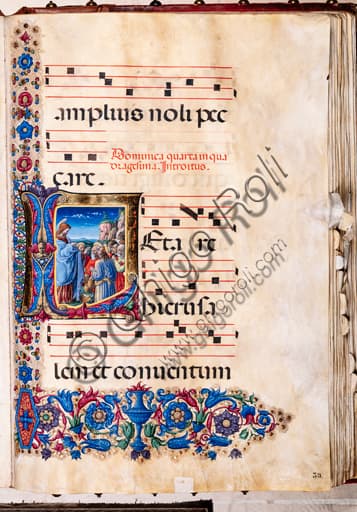 amplius noli pec
Dominica quarta in qua
dragesima. Introitus.
care.
LEtare
hierusa
lem et conuentum
Ghigo Roli
www.ghigoroli.com